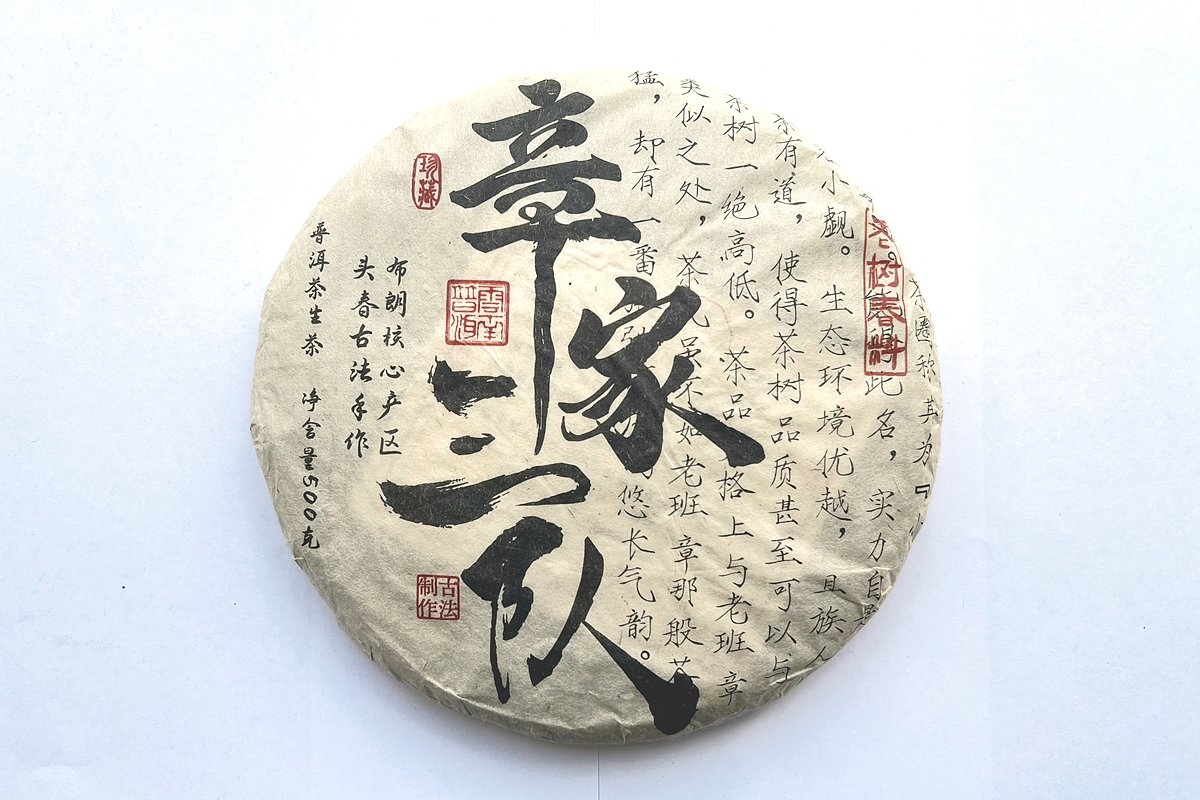 茶圈称其为『
老树春料
此名，实力自是
小觑。生态环境优越，且族人
有道，使得茶树品质甚至可以与
茶树一绝高低。茶品 格上与老班章
类似之处，茶气虽不如老班章那般
猛，却有一番 悠长气韵。
章家三队
珍藏
云南普洱
古法制作
布朗核心产区
头春古法手作
普洱茶生茶 净含量500克